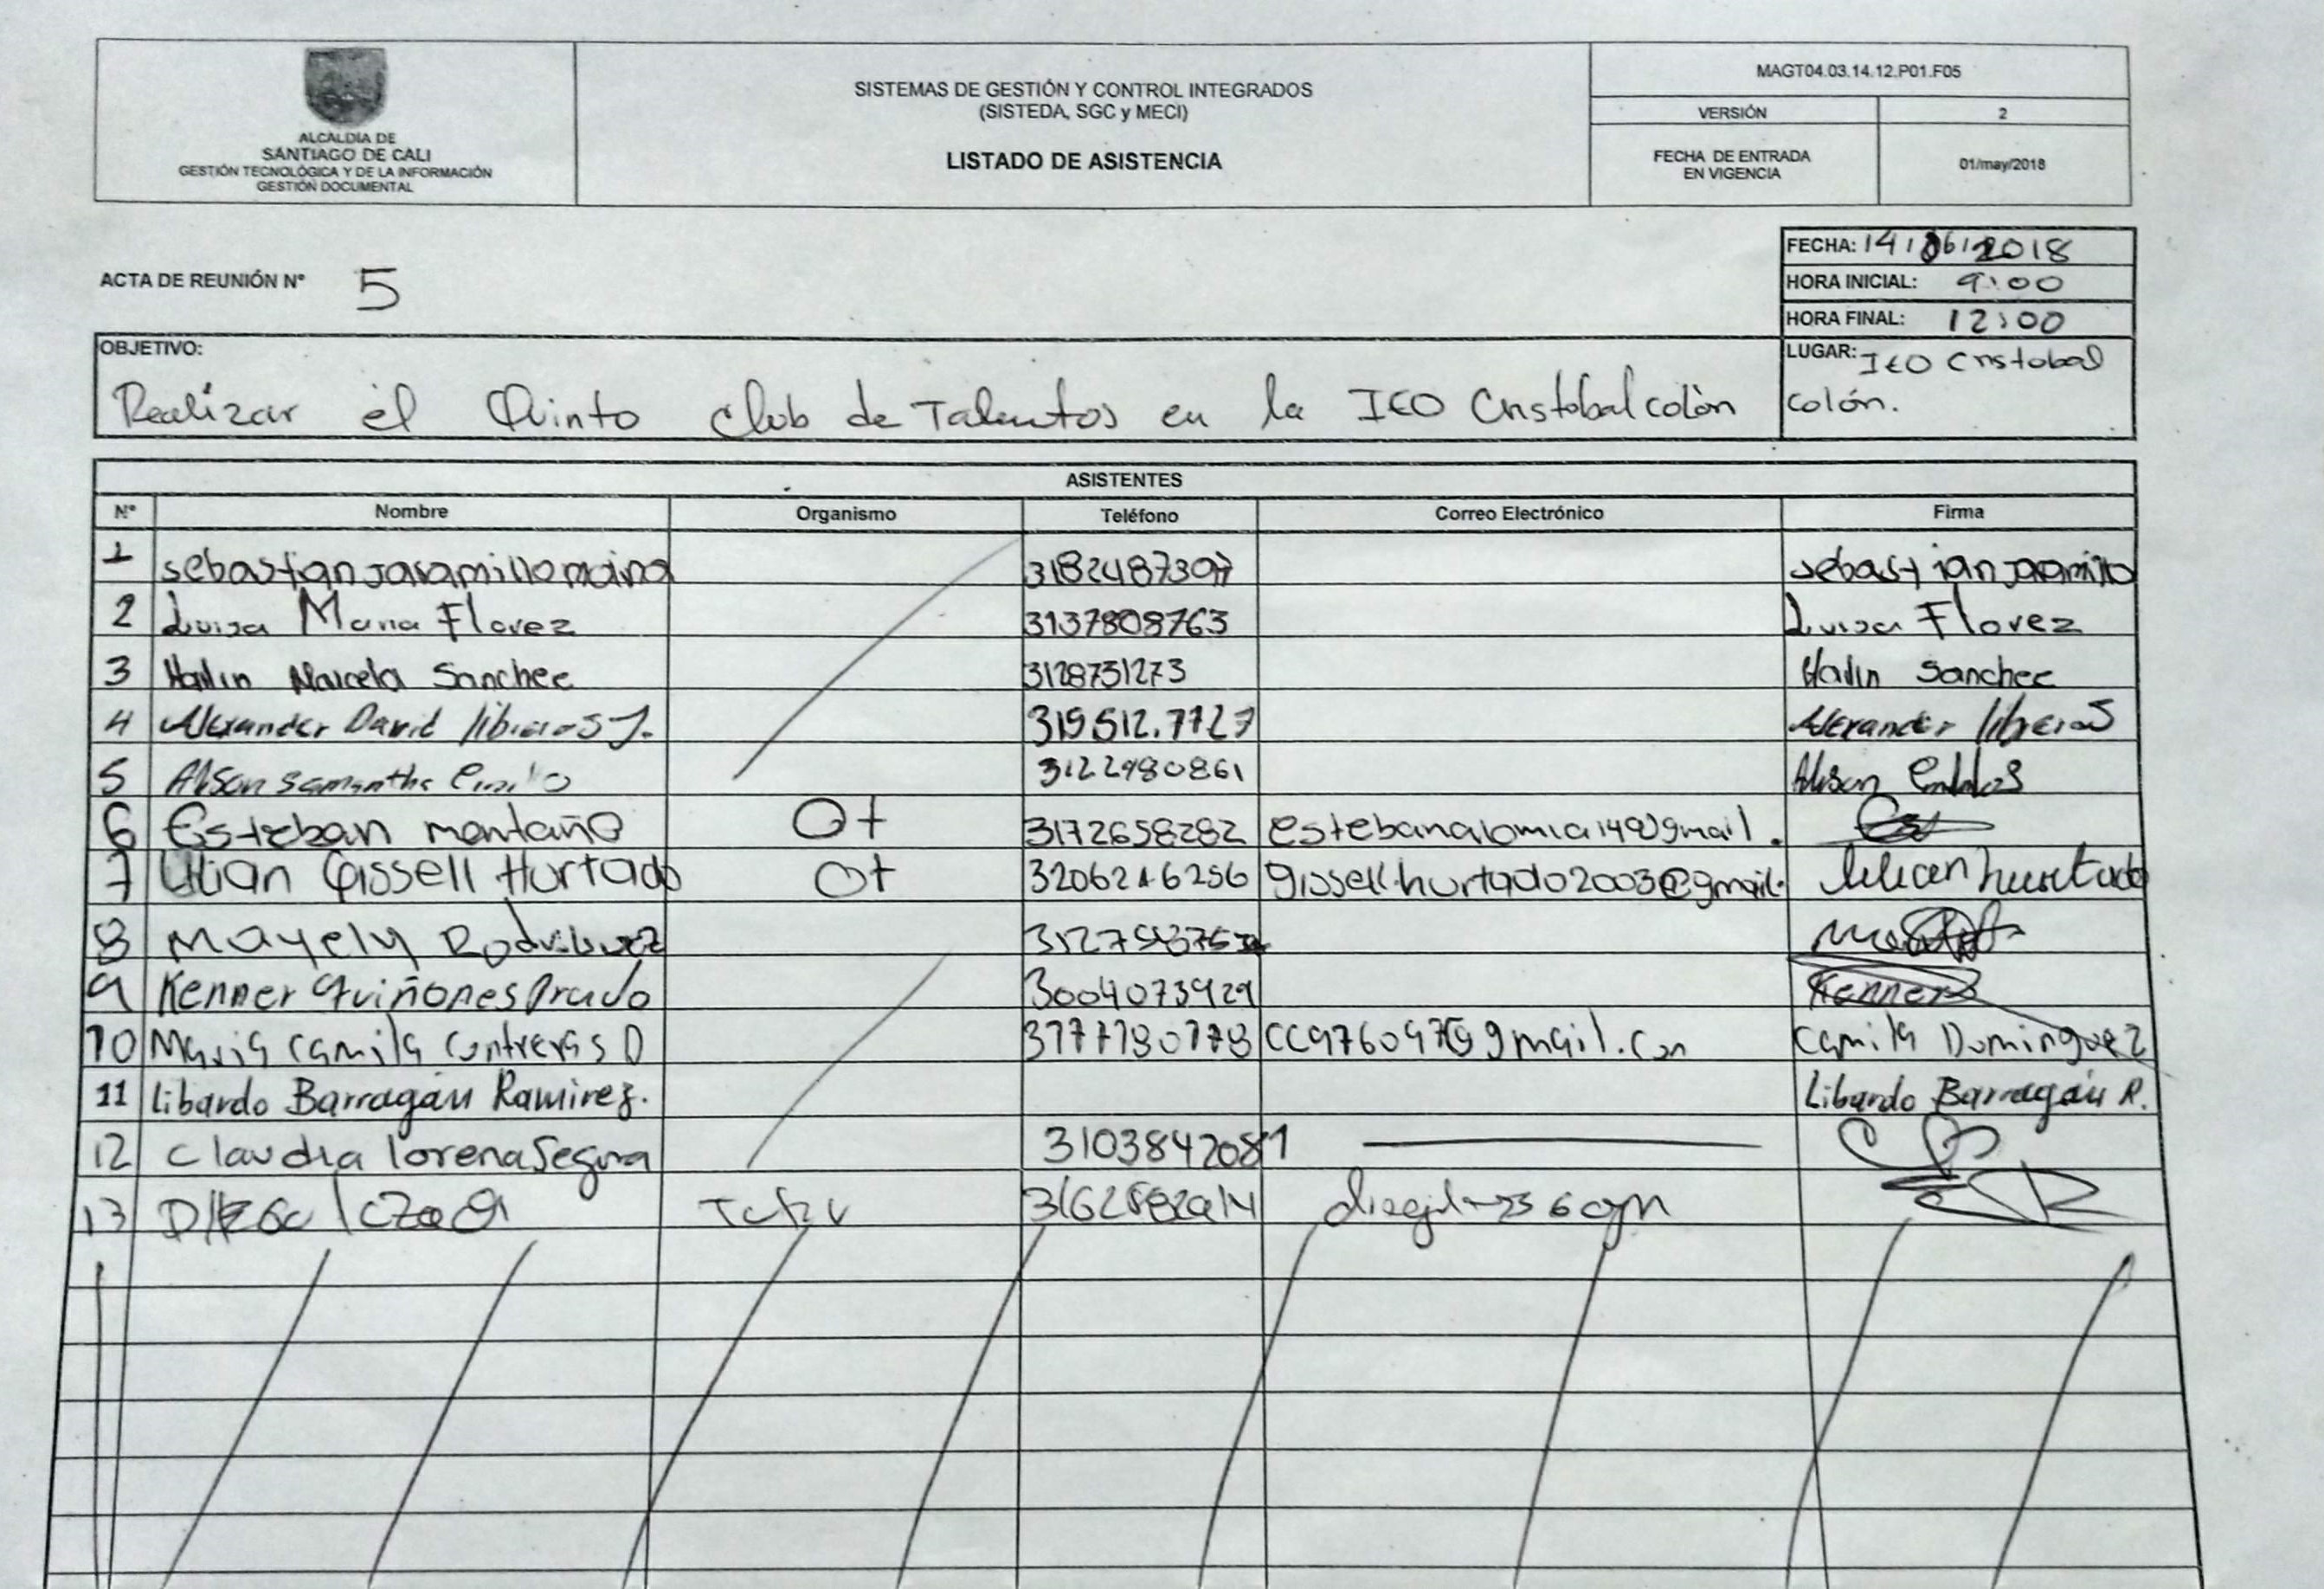 ALCALDÍA DE
SANTIAGO DE CALI
GESTIÓN TECNOLÓGICA Y DE LA INFORMACIÓN
GESTIÓN DOCUMENTAL
SISTEMAS DE GESTIÓN Y CONTROL INTEGRADOS
(SISTEDA, SGC y MECI)
LISTADO DE ASISTENCIA
MAGT04.03.14.12.P01.F05
VERSIÓN 2
FECHA DE ENTRADA
EN VIGENCIA
01/may/2018
ACTA DE REUNIÓN N° 5
FECHA: 14/06/2018
HORA INICIAL: 9:00
HORA FINAL: 12:00
OBJETIVO:
Realizar el Quinto club de Talentos en la IEO Cristobal colón
LUGAR: IEO Cristobal
colón.
ASISTENTES
N° Nombre Organismo Teléfono Correo Electrónico Firma
1 sebastian Jaramillo sebastian jaramillo
2 Luisa Maria Florez 3137808763 Luisa Florez
3 Hailin Marcela Sanchez 3128731273 Hailin Sanchez
4 Alexander David libreros J. 319512.7727 Alexander libreros
5 Alison Samantha 3122980861 Alison
6 Esteban montaño Ot 3172658282 estebanalomia149@gmail.
7 Lilian Gissell Hurtado Ot 3206246256 gissell.hurtado2003@gmail. Lilian hurtado
8 Mayely Rodriguez
9 Kenner Quiñones Prado 3004073929 Kenner
10 Maria Camila Contreras D 3177180778 cc976097@gmail.com Camila Dominguez
11 Libardo Barragán Ramirez. Libardo Barragán R.
12 Claudia lorena Segura 3103842081
13